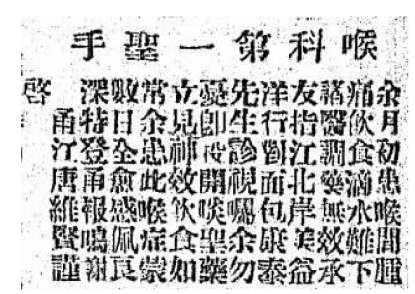 喉科第一聖手
余月初患喉間腫
痛飲食滴水難下
諸醫調藥無效承
友指江北岸美益
洋行對面包康泰
先生診視囑余勿
憂即投開啖聖藥
立見神效飲食如
常余患此喉症崇
數日全愈感佩良
深特登甬報鳴謝
甬江唐維賢謹
啓